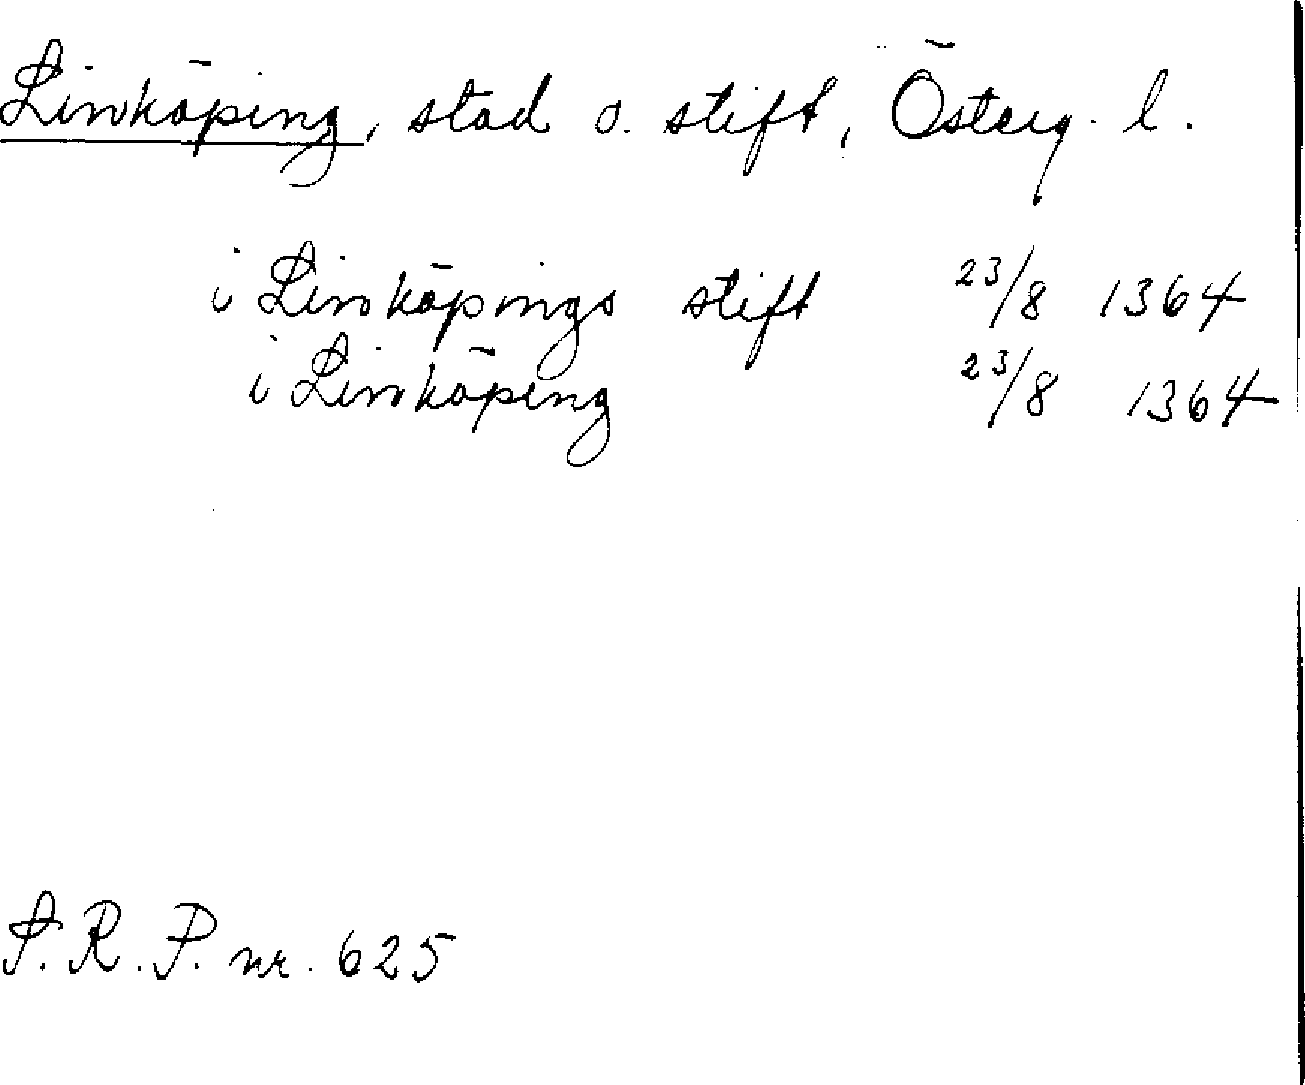 Linköping, stad o. stift, Österg. l.
i Linköpings stift 23/8 1364
i Linköping 23/8 1364
S.R.P. nr. 625